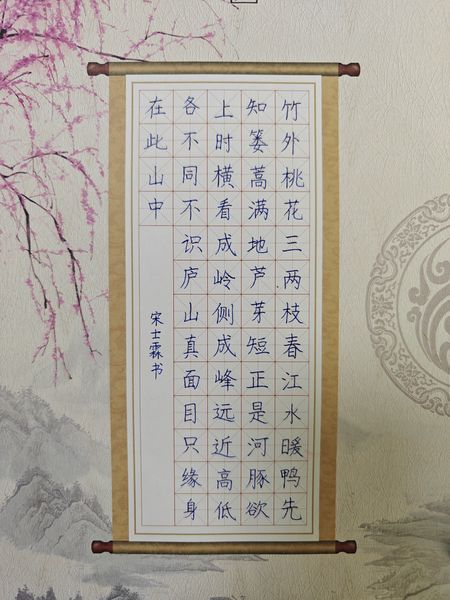 竹外桃花三两枝春江水暖鸭先
知篓蒿满地芦芽短正是河豚欲
上时横看成岭侧成峰远近高低
各不同不识庐山真面目只缘身
在此山中
宋士霖书